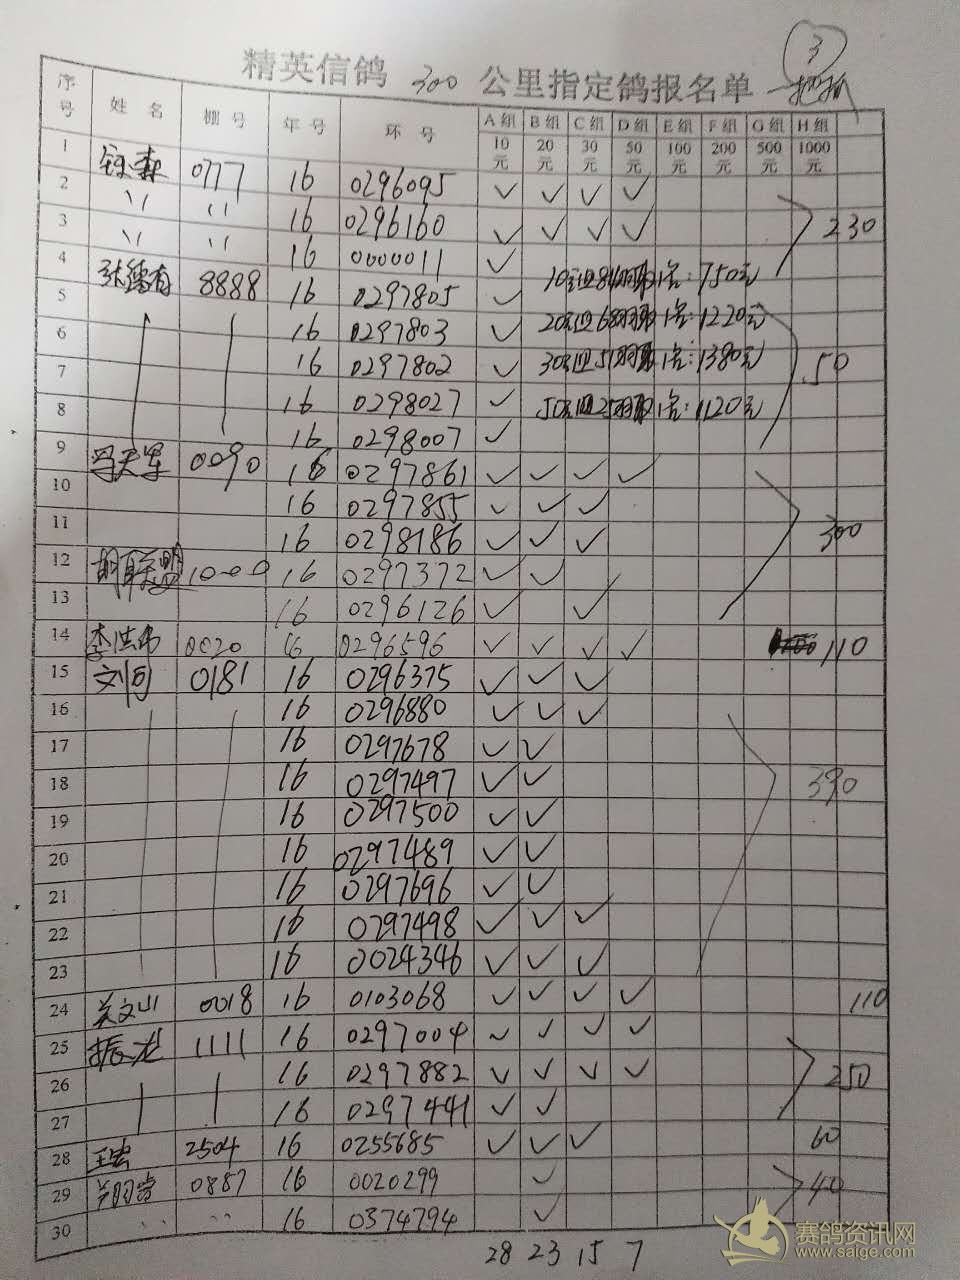 3
精英信鸽 300 公里指定鸽报名单
序号 姓名 棚号 年号 环号 A组 B组 C组 D组 E组 F组 G组 H组
10元 20元 30元 50元 100元 200元 500元 1000元
1 0777 16 0296095 ✓ ✓ ✓ ✓
2 〃 〃 16 0296160 ✓ ✓ ✓ ✓ 230
3 〃 〃 16 0000011 ✓
4 8888 16 0297805 ✓ 10元 84羽取1名:750元
5 16 0297803 ✓ 20元 68羽取1名:1220元
6 16 0297802 ✓ 30元 51羽取1名:1380元 50
7 16 0298027 ✓ 50元 25羽取1名:1120元
8 16 0298007 ✓
9 冯天军 0090 16 0297861 ✓ ✓ ✓ ✓
10 16 0297855 ✓ ✓ ✓
11 16 0298186 ✓ ✓ ✓ 300
12 胡联盟 1000 16 0297372 ✓ ✓
13 16 0296126 ✓ ✓
14 李洪伟 0020 16 0296596 ✓ ✓ ✓ ✓ 110
15 刘可 0181 16 0296375 ✓ ✓ ✓
16 16 0296880 ✓ ✓ ✓
17 16 0297678 ✓ ✓
18 16 0297497 ✓ ✓ 390
19 16 0297500 ✓ ✓
20 16 0297489 ✓ ✓
21 16 0297696 ✓ ✓
22 16 0297498 ✓ ✓ ✓
23 16 0024346 ✓ ✓ ✓
24 吴文山 0018 16 0103068 ✓ ✓ ✓ ✓ 110
25 振龙 1111 16 0297004 ✓ ✓ ✓ ✓
26 16 0297882 ✓ ✓ ✓ ✓ 250
27 16 0297441 ✓ ✓
28 王宏 2504 16 0255685 ✓ ✓ ✓ 60
29 0887 16 0020299 ✓ 40
30 〃 〃 16 0374794 ✓
28 23 15 7
赛鸽资讯网
www.saige.com